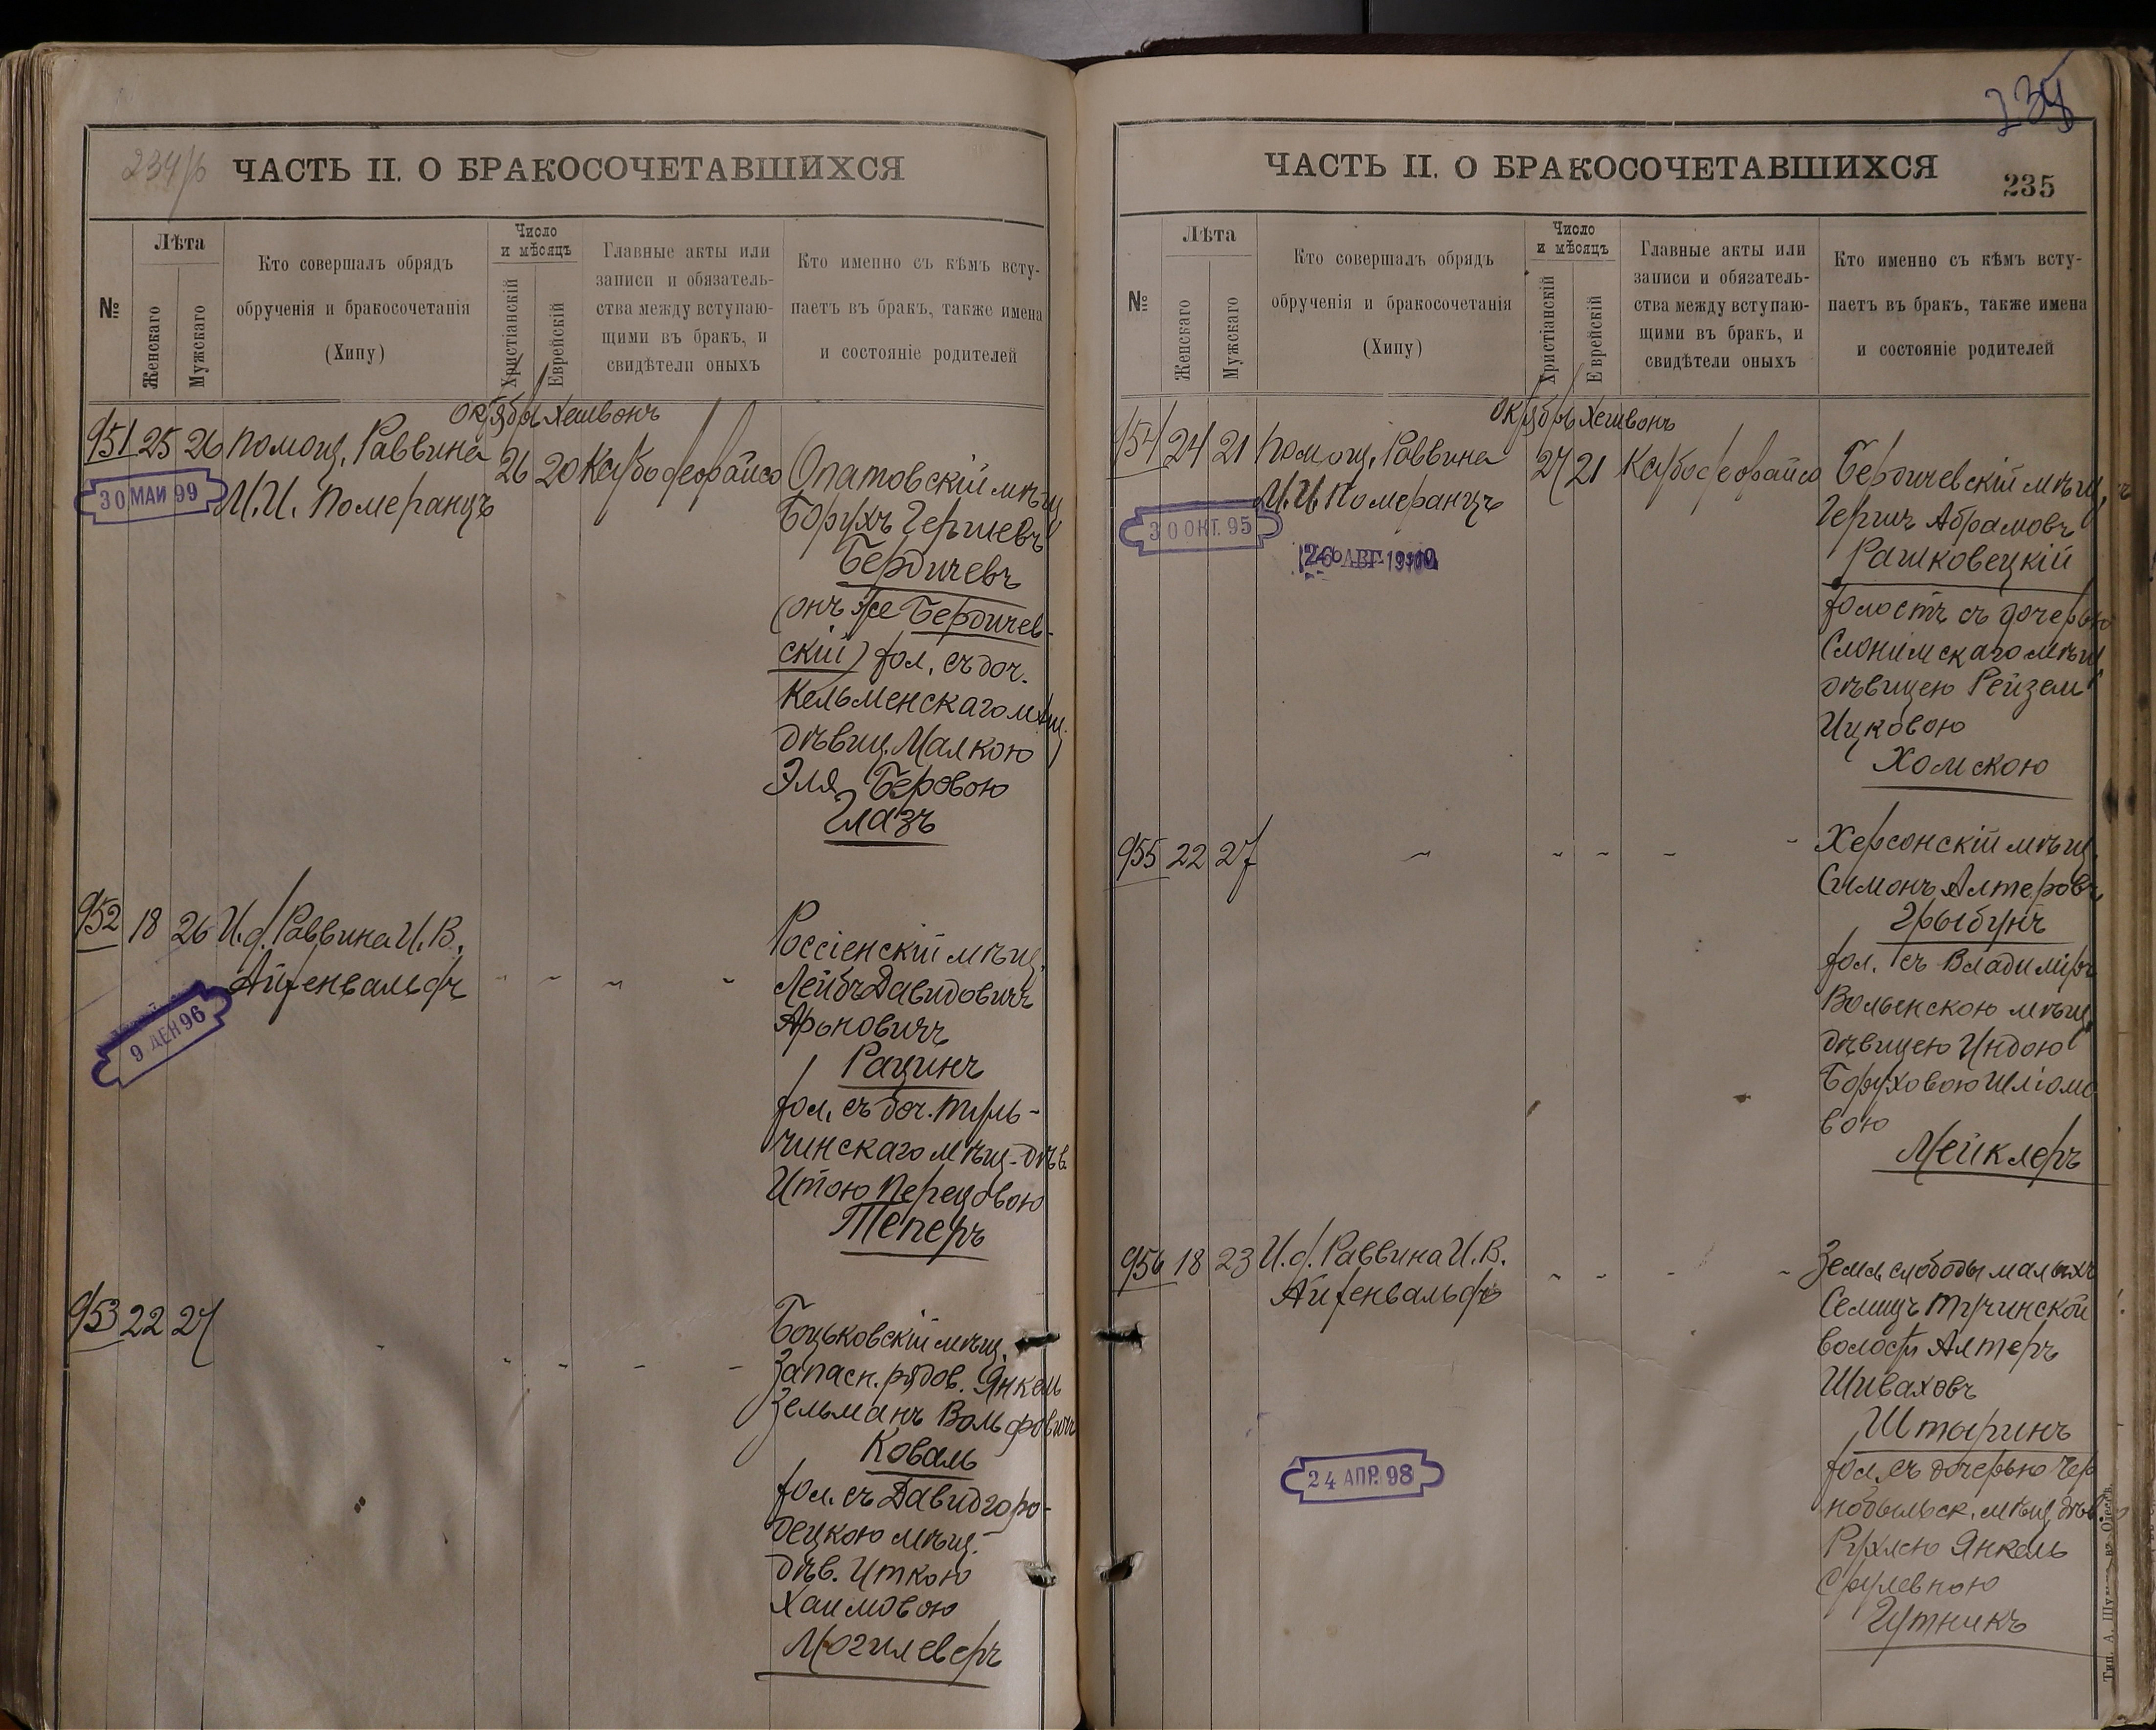 234/б
ЧАСТЬ II. О БРАКОСОЧЕТАВШИХСЯ
№
Лѣта
Женскаго
Мужскаго
Кто совершалъ обрядъ
обрученія и бракосочетанія
(Хипу)
Число
и мѣсяцъ
Христіанскій
Еврейскій
Главные акты или
записи и обязатель-
ства между вступаю-
щими въ бракъ, и
свидѣтели оныхъ
Кто именно съ кѣмъ всту-
паетъ въ бракъ, также имена
и состояніе родителей
Октябрь Хешвонъ
951 25 26 Помощ. Раввина 26 20
И.И. Померанцъ
30 МАИ 99
Опатовскій мѣщ.
Борухъ Гершевъ
Бердичевъ
(онъ же Бердичев-
скій) хол. съ доч.
Кельменскаго мѣщ.
дѣвиц. Малкою
Эля Беровою
Глазъ
952 18 26 И.д. Раввина И.В.
Айзенвальдъ - - - -
9 ДЕН 96
Россіенскій мѣщ.
Лейбъ Давидовичъ
Арьновичъ
Рацинъ
хол. съ доч. Туль-
чинскаго мѣщ. дѣв.
Итою Перецовою
Теперъ
953 22 27 - - - - -
Боцьковскій мѣщ.
Запасн. рядов. Янкель
Зельманъ Вольфовичъ
Коваль
хол. съ Давидгоро-
децкою мѣщ.
дѣв. Иткою
Хаимовою
Могилеверъ
235
ЧАСТЬ II. О БРАКОСОЧЕТАВШИХСЯ
235
№
Лѣта
Женскаго
Мужскаго
Кто совершалъ обрядъ
обрученія и бракосочетанія
(Хипу)
Число
и мѣсяцъ
Христіанскій
Еврейскій
Главные акты или
записи и обязатель-
ства между вступаю-
щими въ бракъ, и
свидѣтели оныхъ
Кто именно съ кѣмъ всту-
паетъ въ бракъ, также имена
и состояніе родителей
Октябрь Хешвонъ
954 24 21 Помощ. Раввина 27 21
И.И. Померанцъ
30 ОКТ. 95
26 АВГ 1910
Бердичевскій мѣщ.
Гершъ Абрамовъ
Рашковецкій
холостъ съ дочерью
Слонимскаго мѣщ.
дѣвицею Рейзею
Ицковою
Хомскою
955 22 27 - - - - -
Херсонскій мѣщ.
Симонъ Алтеровъ
Грыбунъ
хол. съ Владимiръ
Волынскою мѣщ.
дѣвицею Индою
Боруховою Шліомо
вою
Мейклеръ
956 18 23 И.д. Раввина И.В.
Айзенвальдъ - - - -
24 АПР. 98
Земл. слободы малыхъ
Селищъ Тучинской
волости Алтеръ
Шиваховъ
Штаринъ
хол. съ дочерью Чер
нобыльск. мѣщ. дѣв.
Рухлею Янкель
Срулевною
Гутникъ